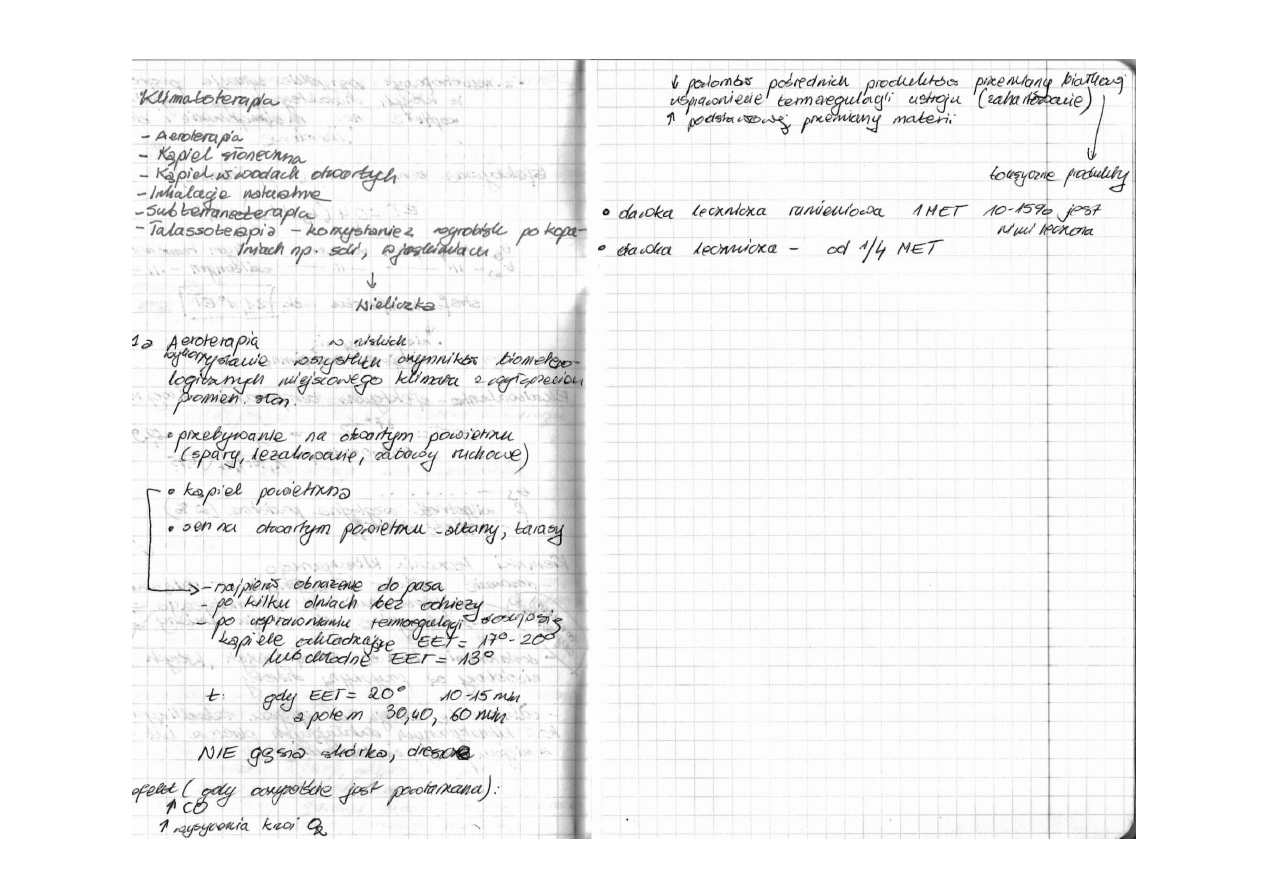 Klimatoterapia
- Aeroterapia
- Kąpiel słoneczna
- Kąpiel w wodach otwartych
- Inhalacje naturalne
- Subterraneoterapia
- Talassoterapia - korzystanie z wyrobisk po kopa-
lniach np. soli, w jaskiniach
↓
Wieliczka
1. Aeroterapia
wykorzystanie wszystkich czynników biometeo-
rologicznych miejscowego klimatu z wyłączeniem
promien. słon.
• przebywanie na otwartym powietrzu
(spacery, leżakowanie, zabawy ruchowe)
• kąpiel powietrzna
• sen na otwartym powietrzu - altany, tarasy
- najpierw obnażenie do pasa
- po kilku dniach bez odzieży
- po usprawnieniu termoregulacji stosuje się
kąpiele ochładzające EET = 17° - 20°
lub chłodne EET = 13°
t: gdy EET = 20° 10-15 min
a potem 30, 40, 60 min
NIE gęsia skórka, dreszcze
efekt (gdy wszystkie jest powtarzana):
↑ CO
↑ wysycenia krwi O2
↓ poziomów pośrednich produktów przemiany białkowej
usprawnienie termoregulacji ustroju (zahartowanie)
↑ podstawowej przemiany materii
toksyczne produkty
• dawka lecznicza rumieniowa 1 MET 10-15% jest
• dawka lecznicza - od 1/4 MET